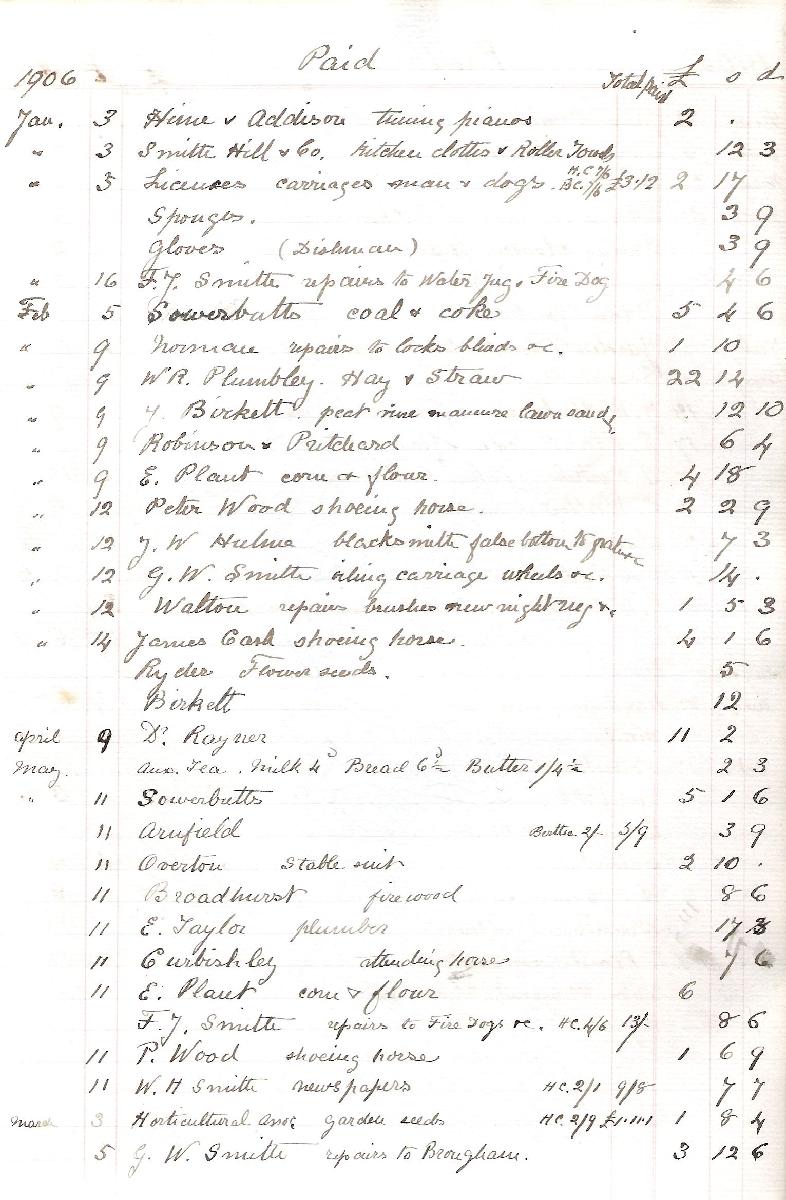 Paid
1906 Total paid £ s d
Jan. 3 Hime & Addison tuning pianos 2 .
" 3 Smith Hill & Co. Kitchen cloths & Roller Towels 12 3
" 5 Licences carriages man & dogs. H.C 7/6 B.C. 7/6 £3.12 2 17
Sponges. 3 9
Gloves (Dishman) 3 9
" 16 F.J. Smith repairs to Water Jug & Fire Dog 4 6
Feb 5 Sowerbutts coal & coke 5 4 6
" 9 Norman repairs to locks blinds &c. 1 10
" 9 W.R. Plumbley. Hay & Straw 22 14
" 9 J. Birkett. peat vine manure lawn sand 12 10
" 9 Robinson & Pritchard 6 4
" 9 E. Plant corn & flour. 4 18
" 12 Peter Wood shoeing horse. 2 2 9
" 12 J. W Hulme blacksmith false bottom to grate &c 7 3
" 12 G. W. Smith oiling carriage wheels &c. 14 .
" 12 Walton repairs brushes new night jug &c 1 5 3
" 14 James Cash shoeing horse. 4 1 6
Ryder Flower seeds. 5
Birkett 12
April 9 Dr Rayner 11 2
May. Tea. Milk 4d Bread 6½d Butter 1/4½ 2 3
" 11 Sowerbutts 5 1 6
11 Arnfield 2/- 5/9 3 9
11 Overton Stable suit 2 10 .
11 Broadhurst firewood 8 6
11 E. Taylor plumber 17 3
11 Curbishley attending horse 7 6
11 E. Plant corn & flour 6
F. J. Smith repairs to Fire Dogs &c. H.C. 4/6 13/- 8 6
11 P. Wood shoeing horse 1 6 9
11 W. H Smith newspapers H.C. 2/1 9/8 7 7
March 3 Horticultural Assoc garden seeds H.C. 2/9 £1.11.1 1 8 4
5 G. W. Smith repairs to Brougham. 3 12 6